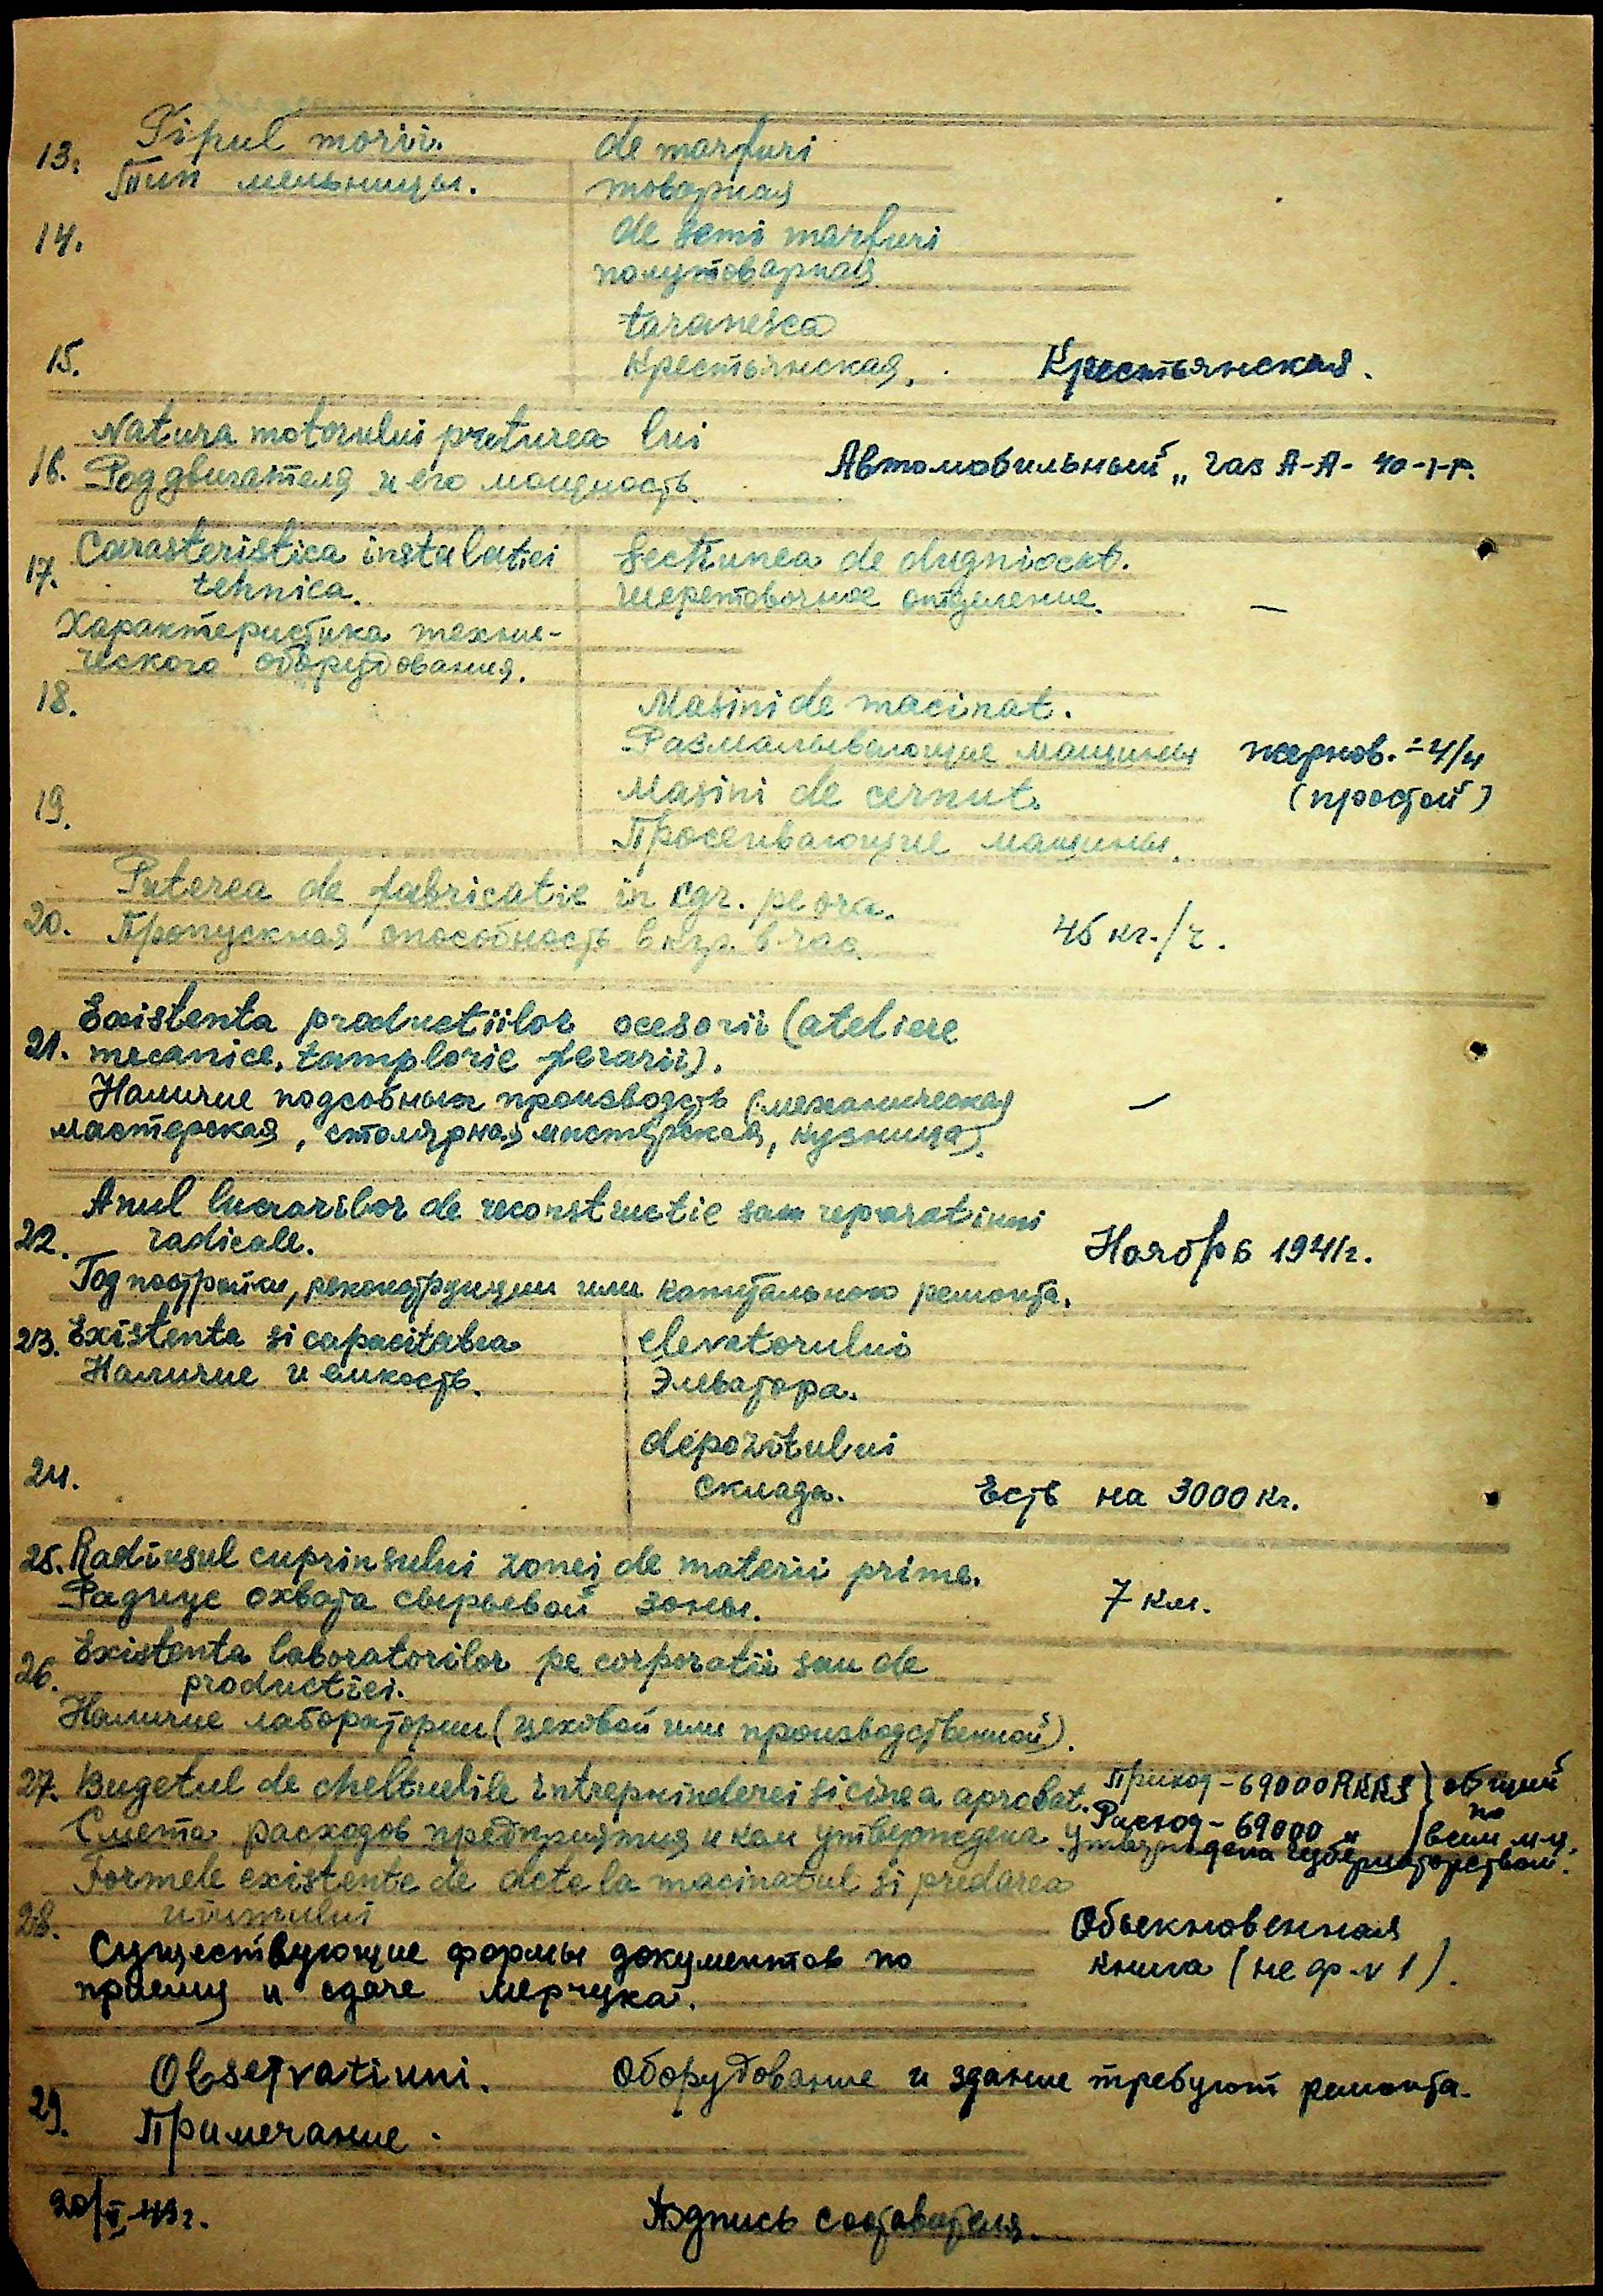 13. Tipul morii. de marfuri
Тип мельницы. товарная
14. de semi marfuri
полутоварная
taranesca
15. Крестьянская. Крестьянская.
Natura motorului puterea lui
16. Род двигателя и его мощность. Автомобильный „ Газ А-А-40-
17. Carasteristica instalatiei Sectiunea de
tehnica. Шеретовочное отделение. —
Характеристика техни-
ческого оборудования.
18. Masini de macinat.
Размалывающие машины жернов. = 4/4
19. Masini de cernut. (простой)
Просеивающие машины.
Puterea de fabricatie in kgr. pe ora.
20. Пропускная способность в кгр. в час. 45 кг./ч.
Existenta productiilor acesorii (ateliere
21. mecanice, tamplarie ferarii).
Наличие подсобных производств (механическая —
мастерская, столярная мастерская, кузница).
Anul lucrarilor de reconstructie sau reparatiuni
22. radicale. Ноябрь 1941г.
Год постройки, реконструкции или капитального ремонта.
23. Existenta si capacitatea elevatorului
Наличие и емкость. Элеватора.
depozitului
24. Склада. Есть на 3000 кг.
25. Radiusul cuprinsului zonei de materii prime.
Радиус охвата сырьевой зоны. 7 км.
Existenta laboratorilor pe corporatii sau de
26. productiei.
Наличие лаборатории (цеховой или производственной).
27. Bugetul de cheltuelile intreprinderei si cine a aprobat. Приход - 69000 RKKS } общий
Смета расходов предприятия и кем утверждена. Расход - 69000 „ по всем м-ц.
утверждена губернаторством.
Formele existente de acte la macinatul si predarea
28. uiumului Обыкновенная
Существующие формы документов по книга (не ф-№ 1).
приему и сдаче мерчука.
Observatiuni. Оборудование и здание требуют ремонта.
29. Примечание.
20/V 43г. Подпись составителя.